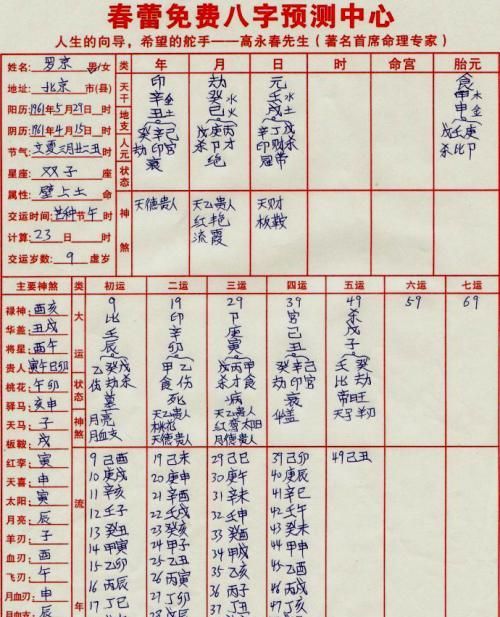 春蕾免费八字预测中心
人生的向导，希望的舵手——高永春先生（著名首席命理专家）
姓名：罗京 男/女 类 年 月 日 时 命宫 胎元
地址：北京 市(县) 天干 印 劫 元 食
阳历：1961年5月29日 时 辛金 癸水 壬水 甲木
阴历：1961年4月15日 时 地支 丑土 巳火 戌土 申金
节气：立夏三月廿二丑时 人元 癸辛己 戊庚丙 辛丁戊 戊壬庚
劫印官 杀卩才 印财杀 杀比卩
星座：双子 座 状态 衰 绝 冠带
属性：壁上土 命 神煞 天德贵人 天乙贵人 天财
交运时间：芒种节午时 红艳 板鞍
计算：23日 时 流霞
交运岁数：9 虚岁
主要神煞 类 初运 二运 三运 四运 五运 六运 七运
禄神：酉亥 大运 9 19 29 39 49 59 69
比 印 卩 官 杀
华盖：丑戌 壬 辛 庚 己 戊
将星：酉午 辰 卯 寅 丑 子
贵人：寅午巳卯 乙癸戊 甲乙 戊丙甲 癸辛己 壬癸
桃花：午卯 状态 伤劫杀 食伤 杀才食 劫印官 比劫
驿马：亥申 墓 死 病 衰 帝旺
天马：子 神煞 月亮 天乙贵人 天乙贵人 华盖 天子羊刃
板鞍：戌 月血支 桃花 红鸾太阳
天德贵人 月德贵人
红孪：寅 流年 9己酉 19己未 29己巳 39己卯 49己丑
天喜：申 10庚戌 20庚申 30庚午 40庚辰
太阳：寅 11辛亥 21辛酉 31辛未 41辛巳
月亮：辰 12壬子 22壬戌 32壬申 42壬午
羊刃：子 13癸丑 23癸亥 33癸酉 43癸未
血刃：酉 14甲寅 24甲子 34甲戌 44甲申
飞刃：午 15乙卯 25乙丑 35乙亥 45乙酉
月血刃：申 16丙辰 26丙寅 36丙子 46丙戌
月血支：辰 17丁巳 27丁卯 37丁丑 47丁亥